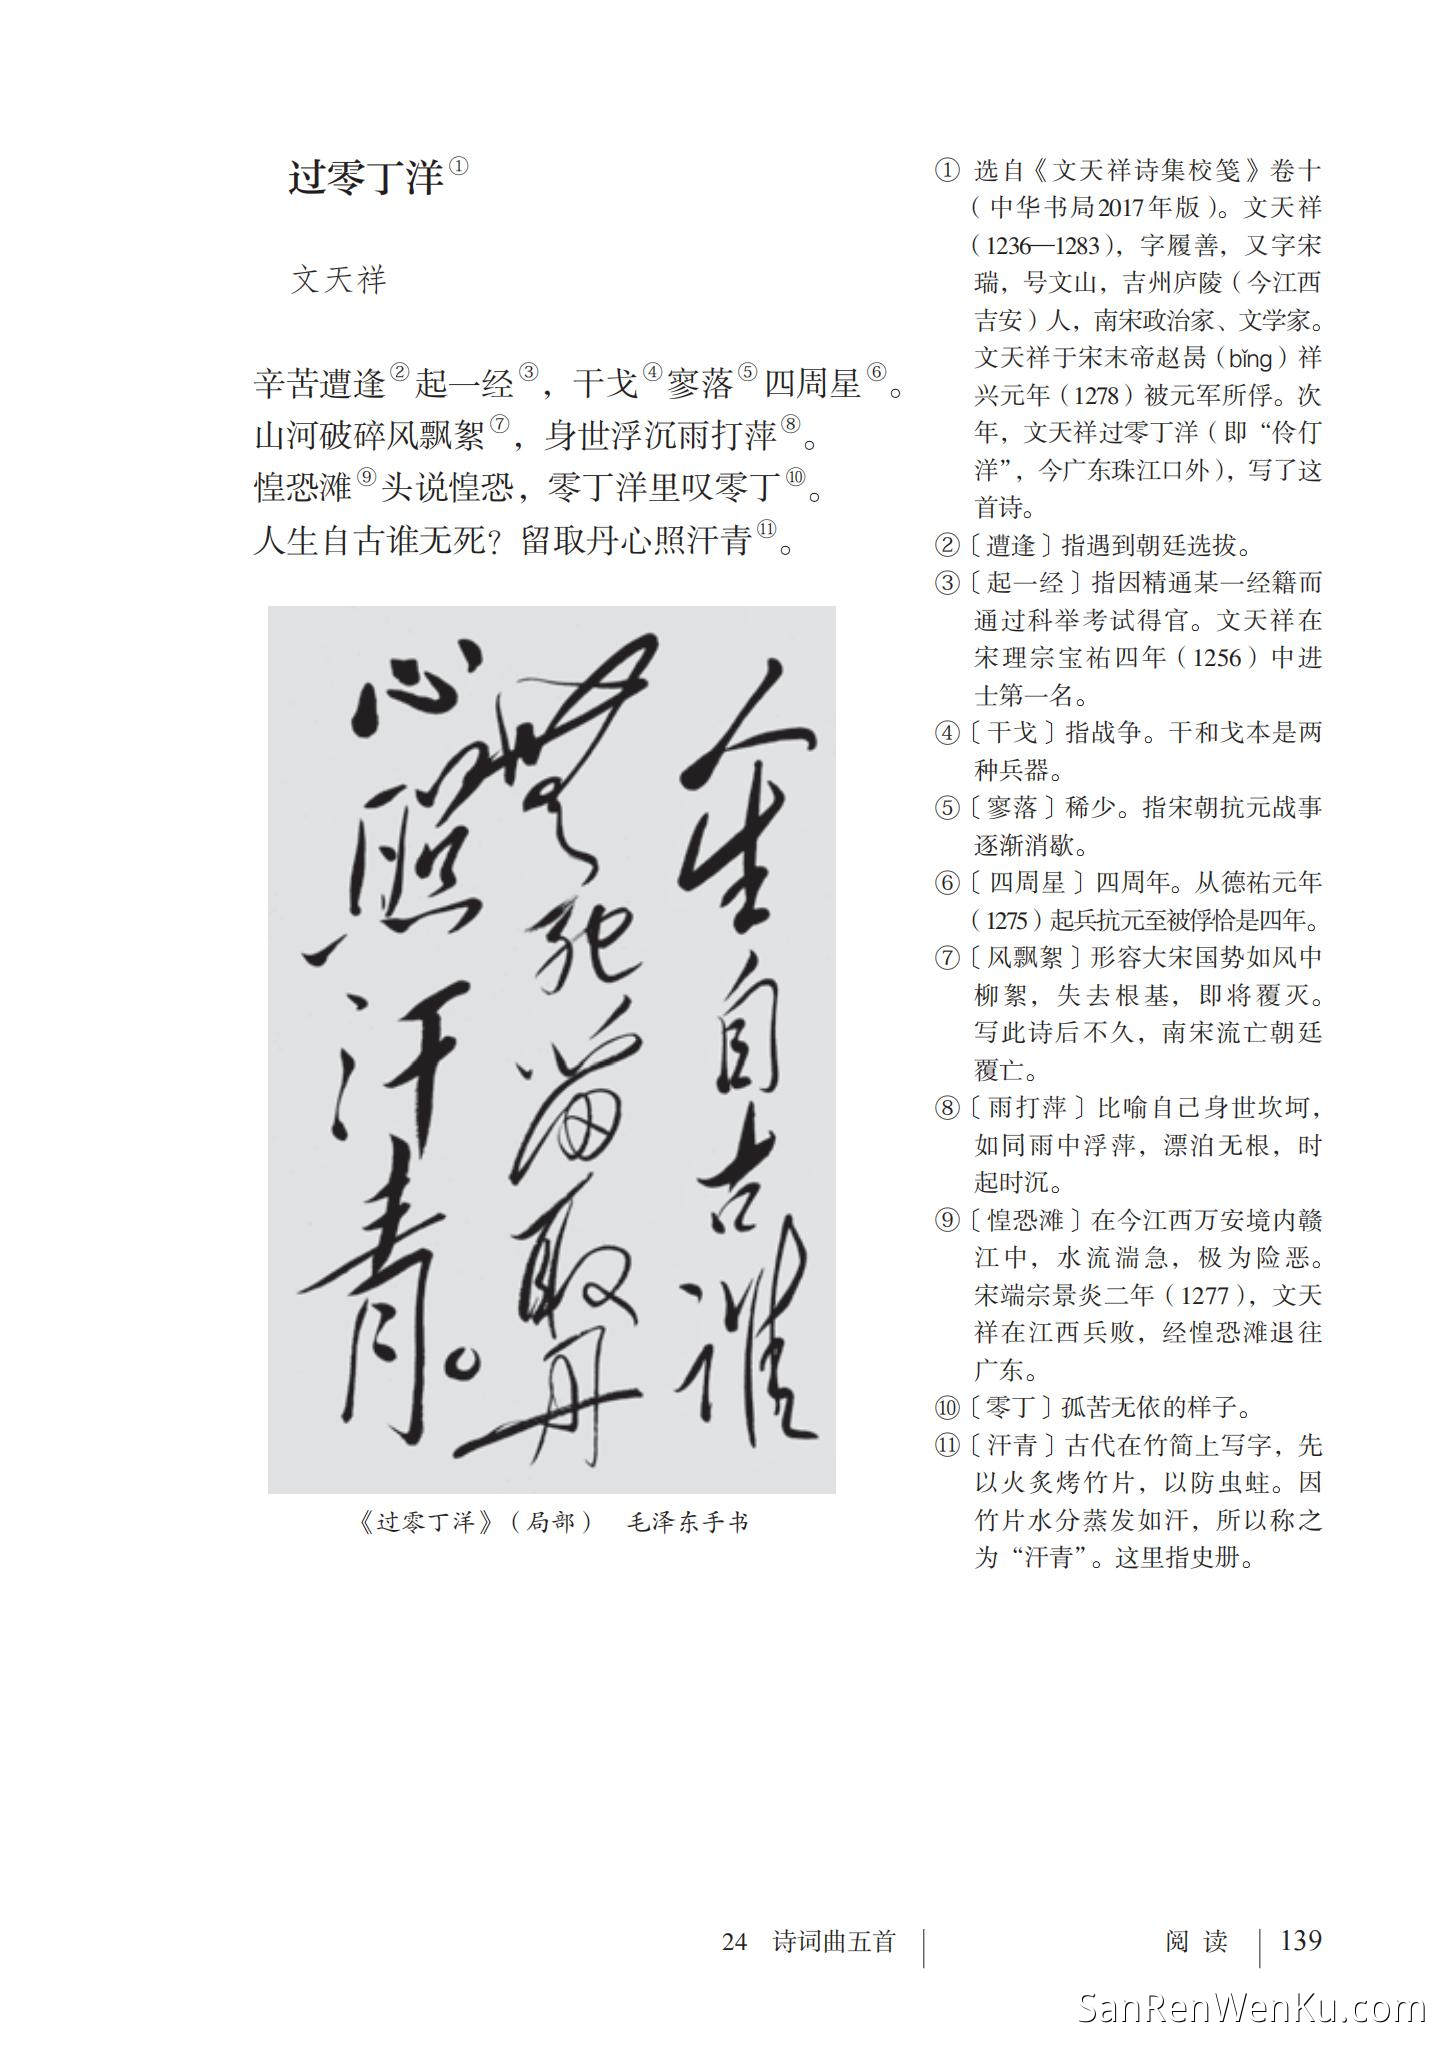 过零丁洋①
文天祥
辛苦遭逢②起一经③，干戈④寥落⑤四周星⑥。
山河破碎风飘絮⑦，身世浮沉雨打萍⑧。
惶恐滩⑨头说惶恐，零丁洋里叹零丁⑩。
人生自古谁无死？留取丹心照汗青⑪。
人生自古谁
无死留取丹
心照汗青。
《过零丁洋》（局部）　毛泽东手书
① 选自《文天祥诗集校笺》卷十
（中华书局2017年版）。文天祥
（1236—1283），字履善，又字宋
瑞，号文山，吉州庐陵（今江西
吉安）人，南宋政治家、文学家。
文天祥于宋末帝赵昺（bǐng）祥
兴元年（1278）被元军所俘。次
年，文天祥过零丁洋（即“伶仃
洋”，今广东珠江口外），写了这
首诗。
②〔遭逢〕指遇到朝廷选拔。
③〔起一经〕指因精通某一经籍而
通过科举考试得官。文天祥在
宋理宗宝祐四年（1256）中进
士第一名。
④〔干戈〕指战争。干和戈本是两
种兵器。
⑤〔寥落〕稀少。指宋朝抗元战事
逐渐消歇。
⑥〔四周星〕四周年。从德祐元年
（1275）起兵抗元至被俘恰是四年。
⑦〔风飘絮〕形容大宋国势如风中
柳絮，失去根基，即将覆灭。
写此诗后不久，南宋流亡朝廷
覆亡。
⑧〔雨打萍〕比喻自己身世坎坷，
如同雨中浮萍，漂泊无根，时
起时沉。
⑨〔惶恐滩〕在今江西万安境内赣
江中，水流湍急，极为险恶。
宋端宗景炎二年（1277），文天
祥在江西兵败，经惶恐滩退往
广东。
⑩〔零丁〕孤苦无依的样子。
⑪〔汗青〕古代在竹简上写字，先
以火炙烤竹片，以防虫蛀。因
竹片水分蒸发如汗，所以称之
为“汗青”。这里指史册。
24　诗词曲五首
阅读　139
SanRenWenKu.com